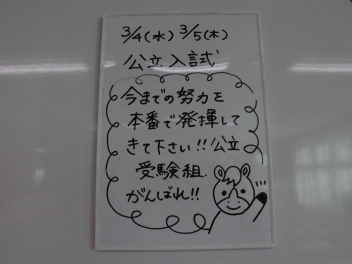 3/4(水) 3/5(木)
公立入試
今までの努力を
本番で発揮して
きて下さい!!公立
受験組.
がんばれ!!